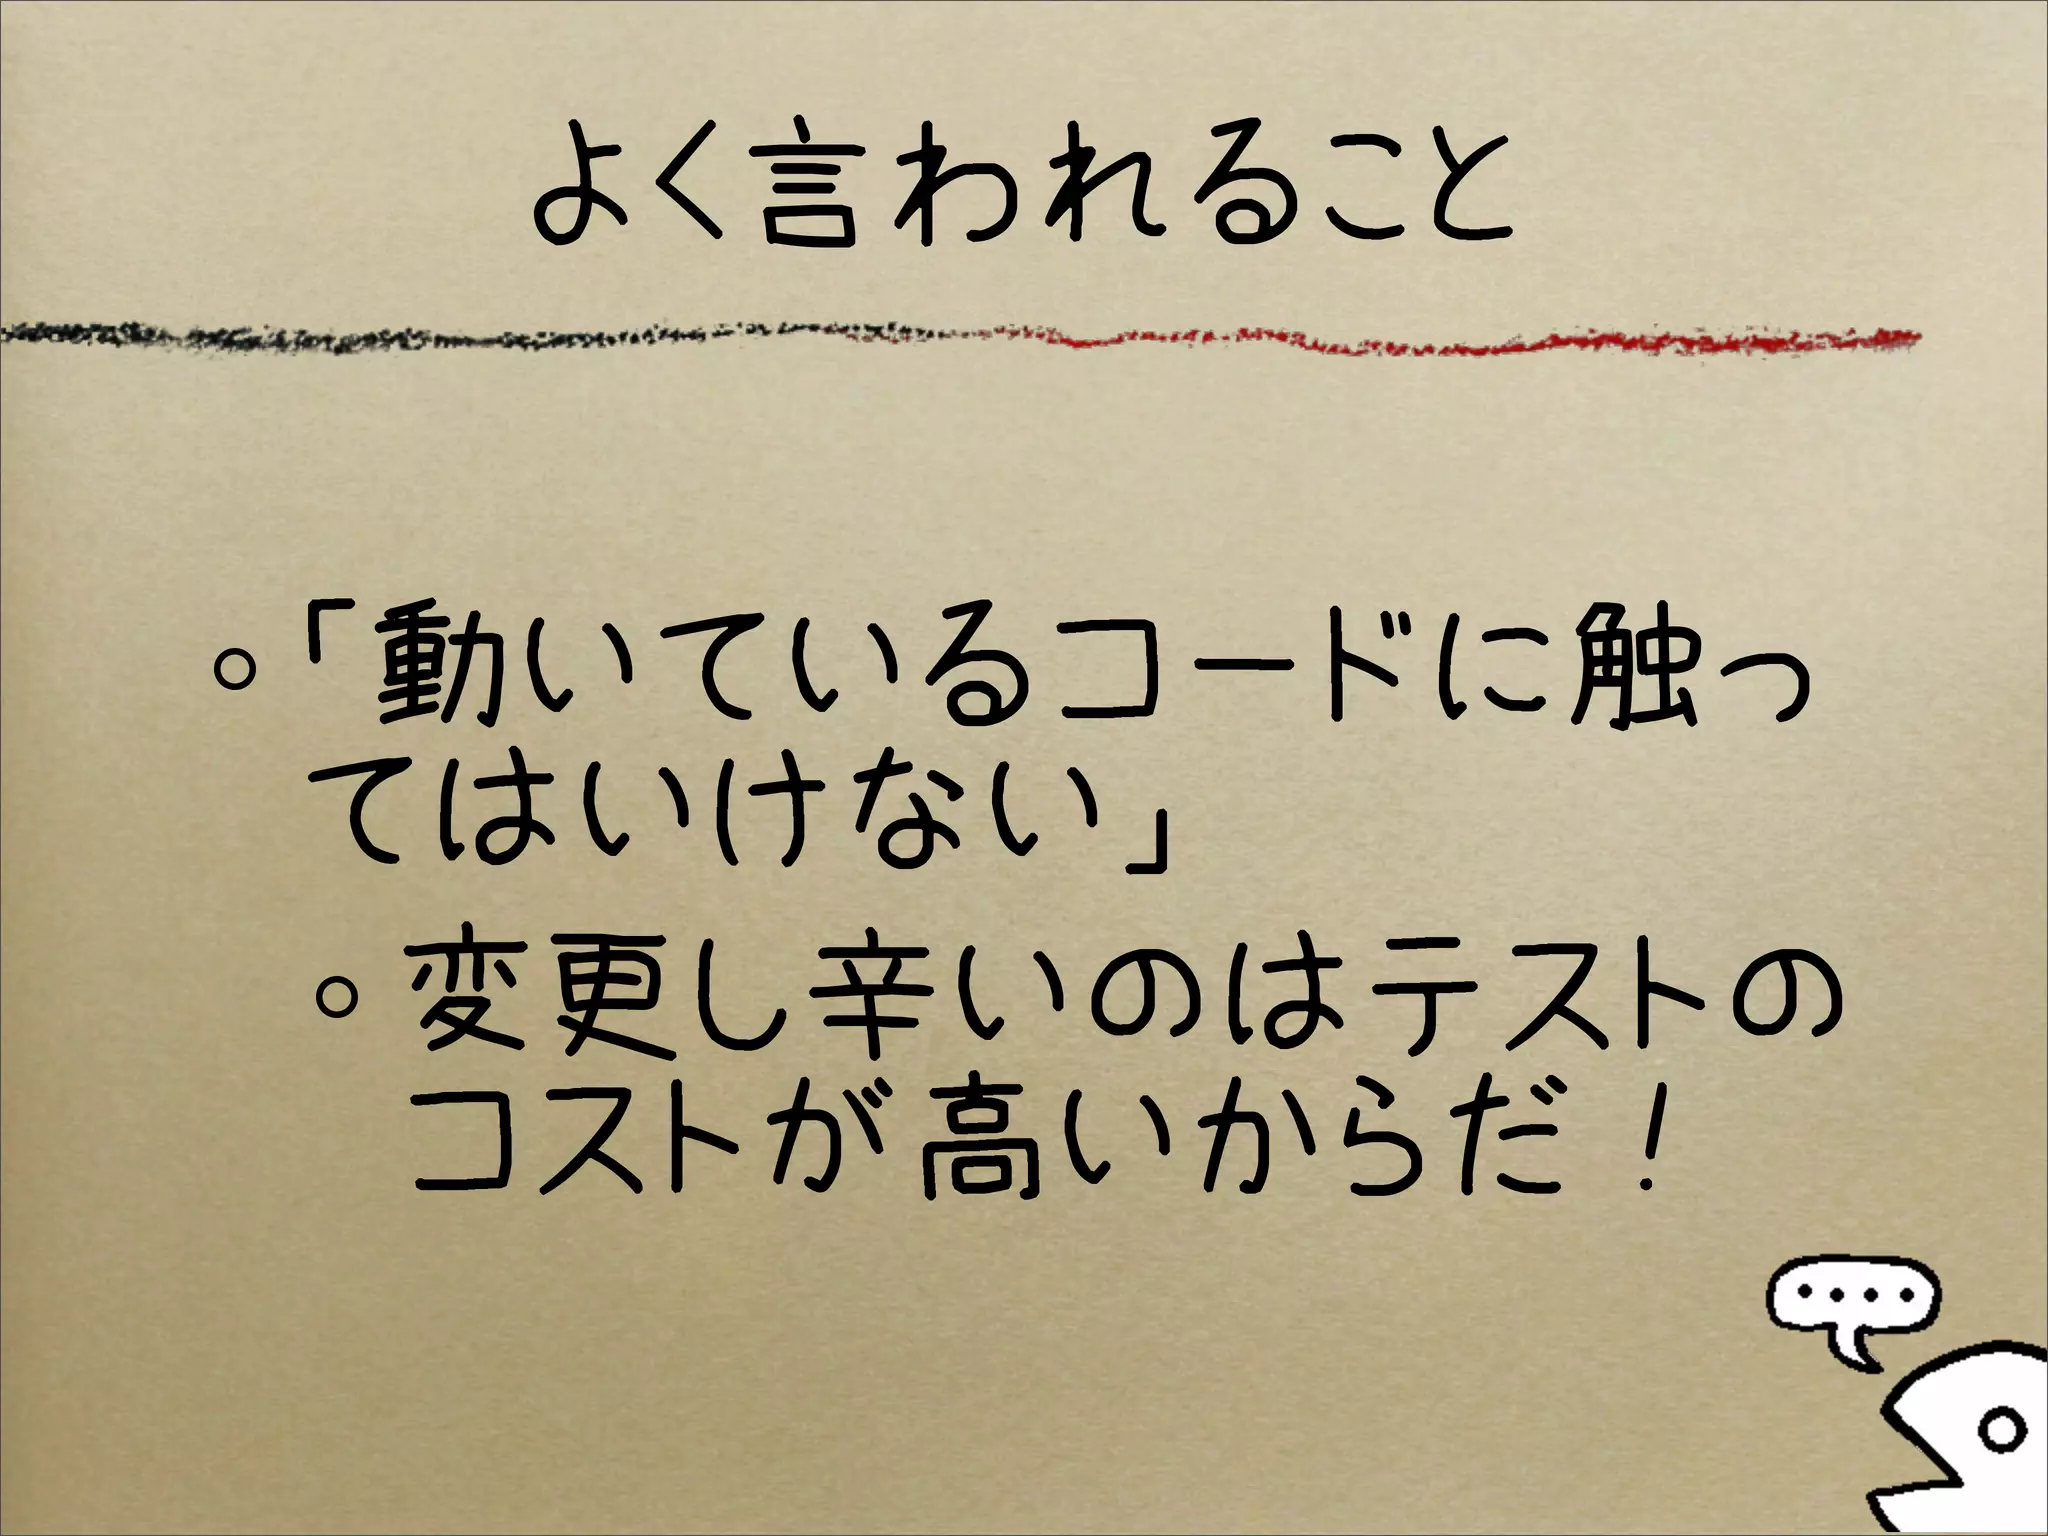 よく言われること
「動いているコードに触っ
てはいけない」
変更し辛いのはテストの
コストが高いからだ！